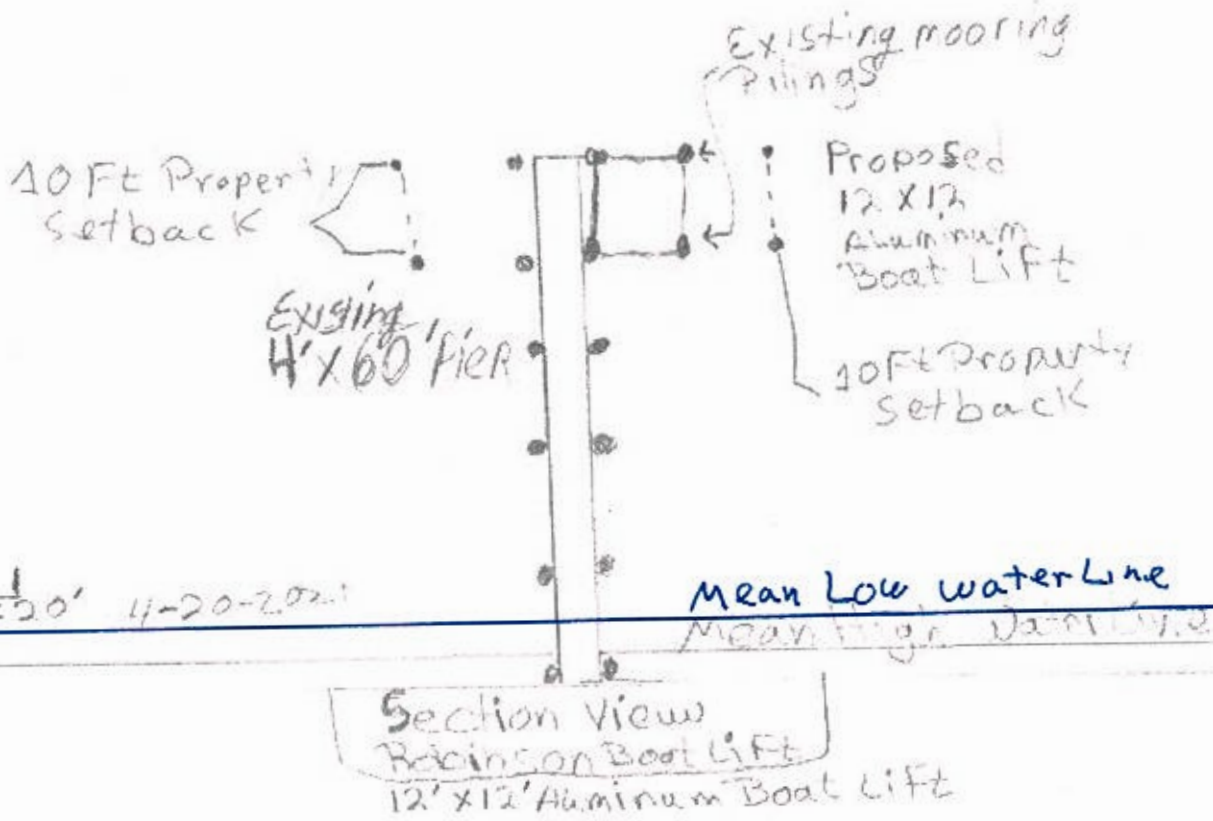 Existing mooring
Pilings
10 Ft Property
Setback
Proposed
12 X 12
Aluminum
Boat Lift
Existing
4' X 60' Pier
10 Ft Property
Setback
20' 4-20-2021
Mean Low water Line
Mean High
Section View
Robinson Boat Lift
12' X 12' Aluminum Boat Lift